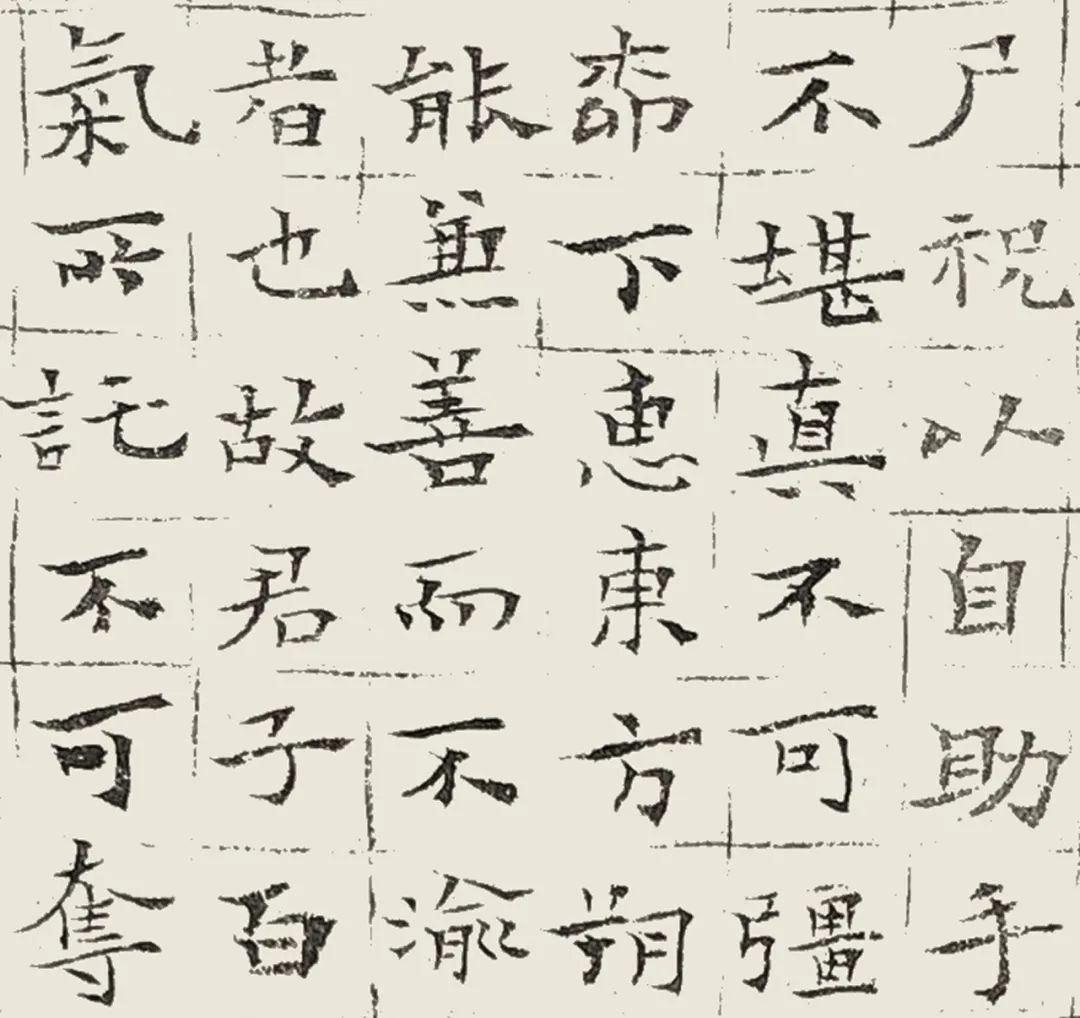 尸祝以自助手
不堪真不可彊
柳下惠東方朔
能兼善而不渝
者也故君子百
氣所託不可奪